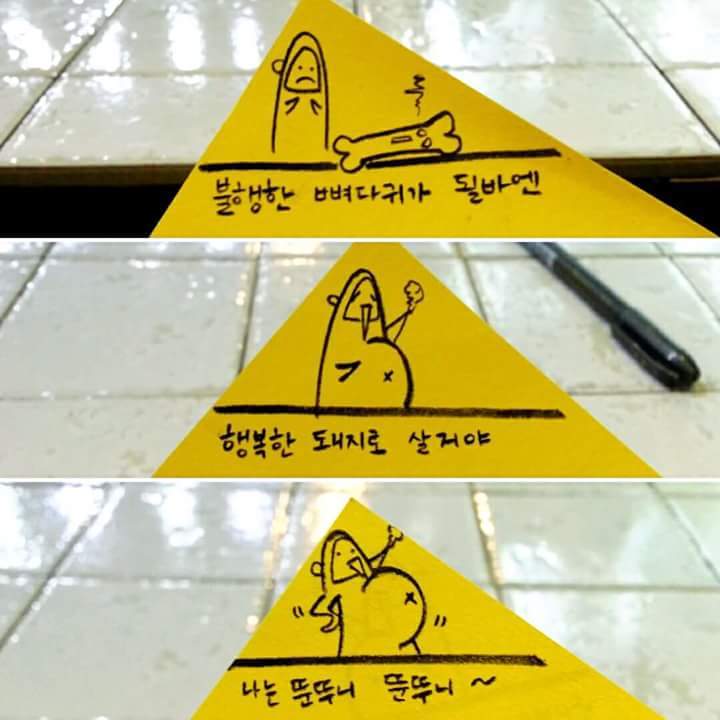 불행한 뼈다귀가 될바엔
행복한 돼지로 살지야
나는 뚠뚜니 뚠뚜니 ~